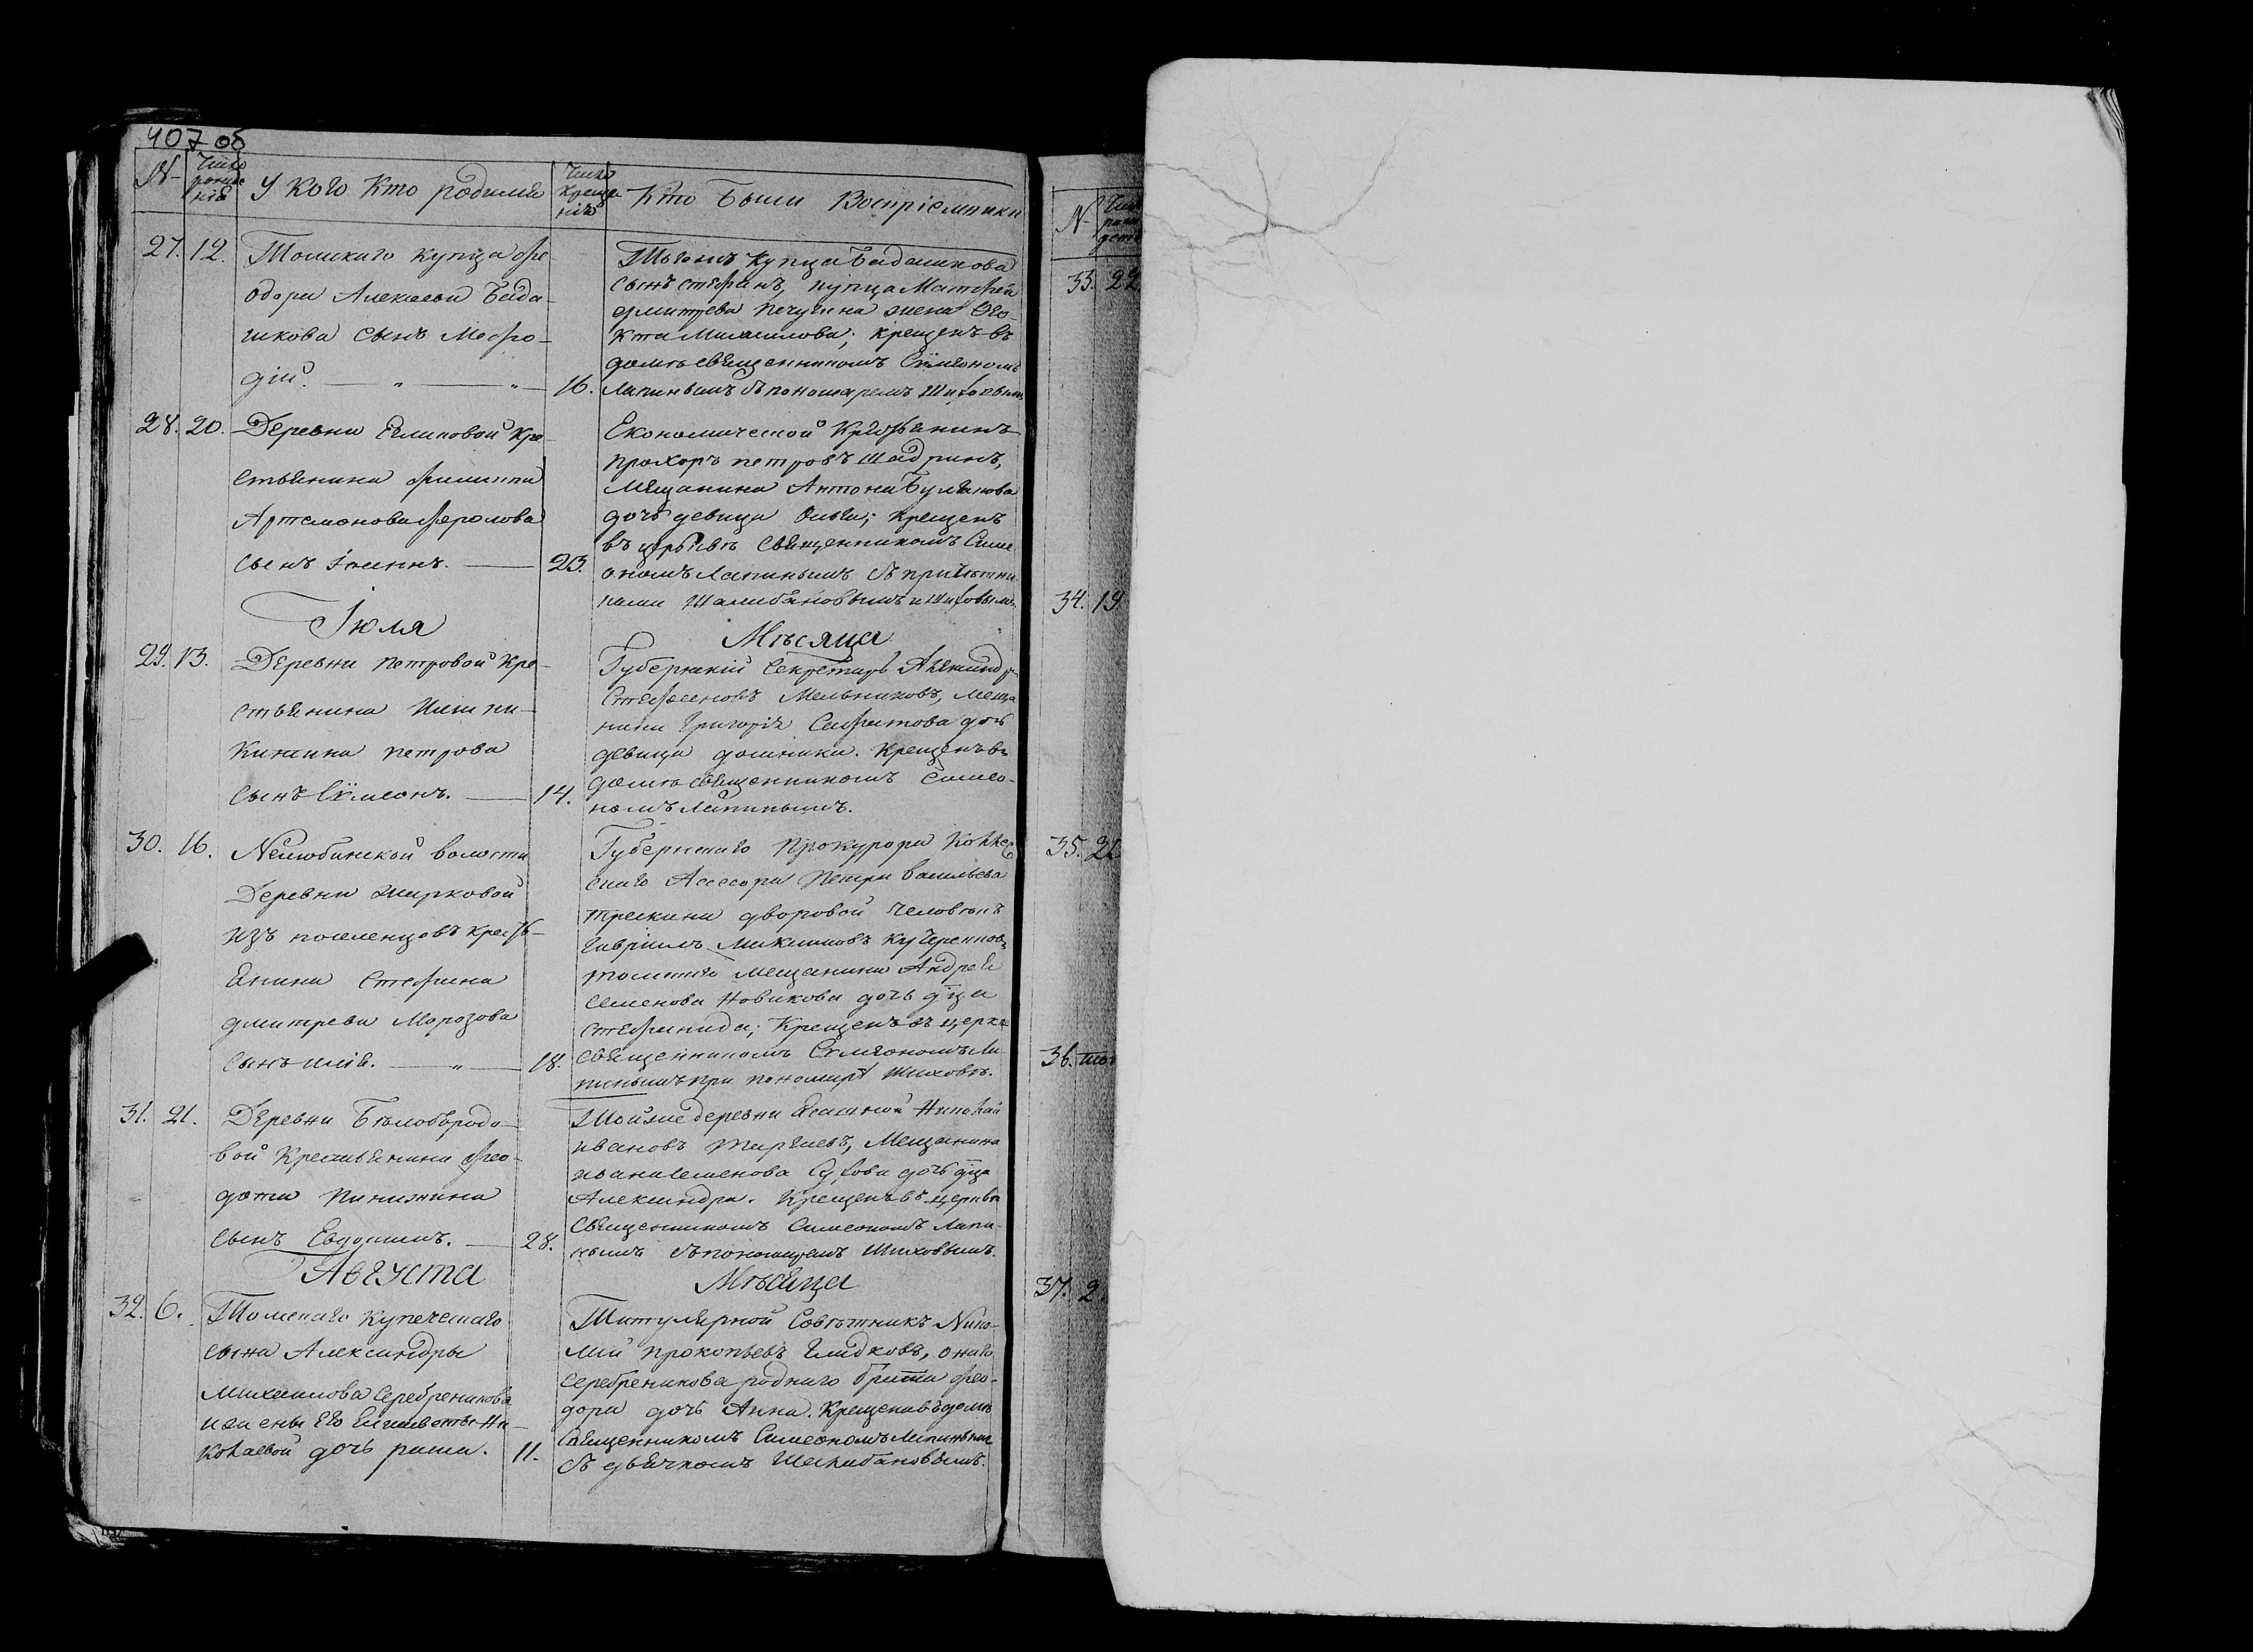 407 об
№
Число рожде нія
У Кого Кто родился
Число креще нія
Кто Были Воспріемники
27. 12.
Томскаго купца Фе
одора Алексеева Бада-
шкова сынъ Мефо-
дій.
16.
Тогожъ купца Бадашкова
сынъ стефанъ, купца Матфея
дмитрева Пичугина жена Фео-
кта Михаилова; крещенъ въ
домѣ священникомъ Симеономъ
Лапинымъ съ пономаремъ Шиховым
28. 20.
Деревни Еливовой Кре-
стьянина Филиппа
Артемонова Фролова
сынъ Іоаннъ.
23.
Економической Крестьянинъ
прохоръ петровъ шадринъ,
Мещанина Антона Булганова
дочь девица Ольга; крещенъ
въ церьквѣ священникомъ Симе
ономъ Лапинымъ съ причетни
ками Шалабановымъ и Шиховымъ.
Іюля
Мѣсяца
29. 13.
Деревни петровой Кре-
стьянина Ильи ни-
китина петрова
сынъ Симеонъ.
14.
Губернскій Секретарь Александръ
Стефановъ Мельниковъ, меща
нина Григорія Сафатова дочь
девица домника. Крещенъ въ
домѣ священникомъ Симео-
номъ Лапинымъ.
30. 16.
Нелюбинской волости
Деревни Жирковой
изъ поселенцовъ кресть-
янина Стефана
дмитрева Морозова
сынъ илія.
18.
Губернскаго Прокурора Коллеж
скаго Асесора Петра васильева
трескина дворовой человѣкъ
гавріилъ Максимовъ Кучеренков,
томскаго мещанина Андрея
семенова Новикова дочь дѣца
стефанида; Крещенъ въ церкве
священникомъ Симеономъ Ла
пинымъ при пономарѣ Шиховѣ.
31. 21.
Деревни Бѣлобородо-
вой Крестьянина Фео-
дота Пинжина
сынъ Евдокимъ.
28.
Тойже деревни Николай
ивановъ, Мещанина
ивана семенова Сухова дочь дѣца
Александра. Крещенъ въ церкви
священникомъ Симеономъ Лапи-
нымъ съ пономаремъ Шиховымъ.
Августа
Мѣсяца
32. 6.
Томскаго купеческаго
сына Александра
Михаилова Серебреникова
и жены Его Елисаветы Ни-
колаевой дочь раиса.
11.
Титулярной Совѣтникъ Нико-
лай прокопьевъ Гладковъ, онаго
серебреникова роднаго брата Фео-
дора дочь Анна. Крещена въ домѣ
священникомъ Симеономъ Лапинымъ
съ дьячкомъ Шалабановымъ.
№
33. 22
34. 19
35. 21
36. той
37. 2.